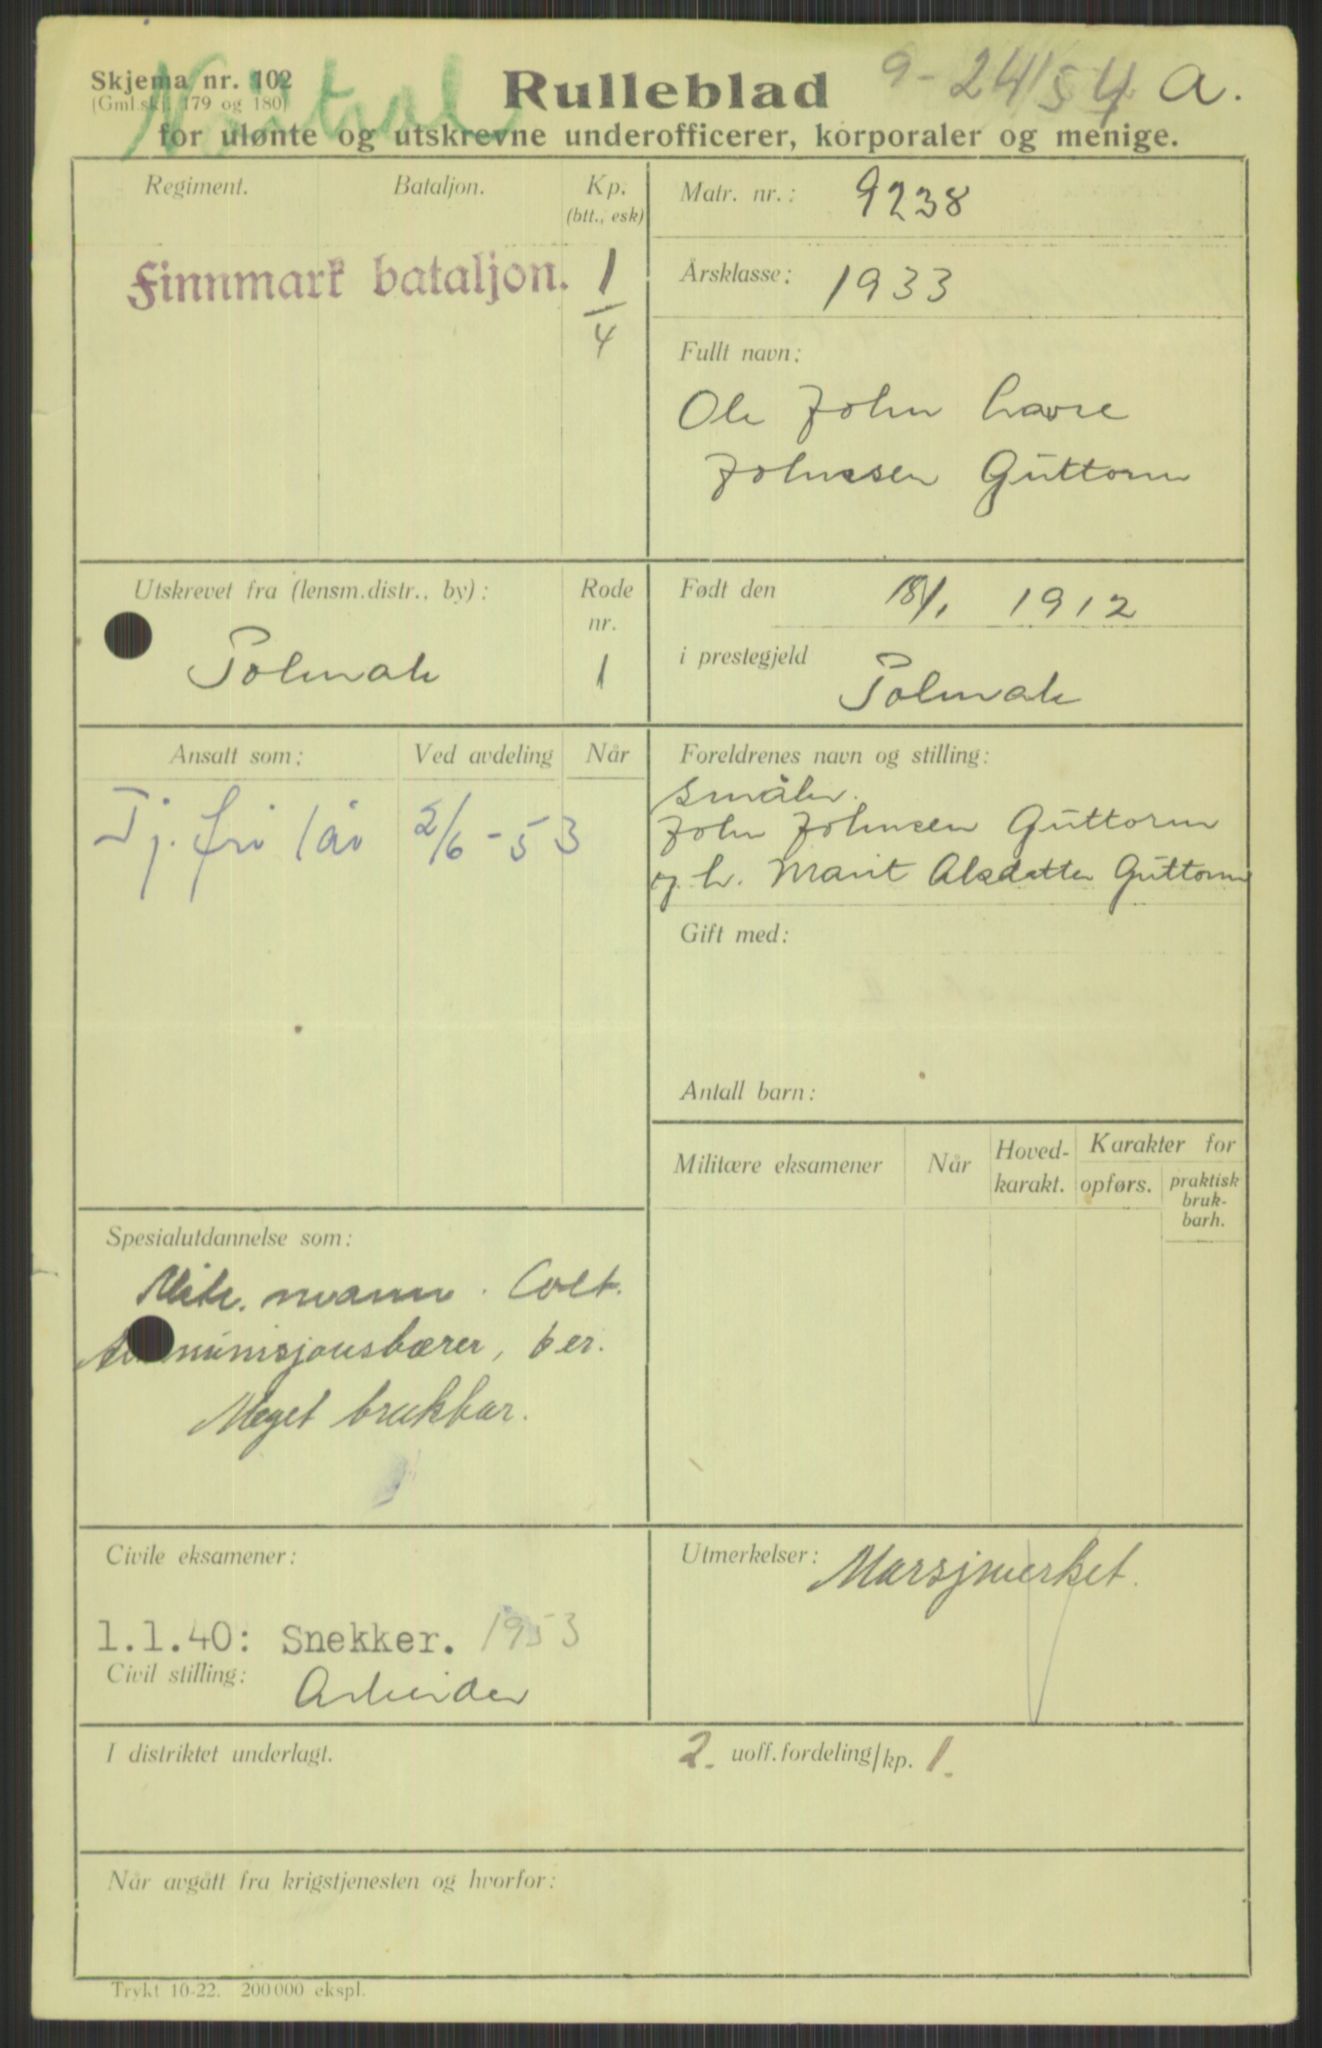 Skjema nr. 102
(Gml. skj. 179 og 180)
Nøitral
9-24/54 a.
Rulleblad
for ulønte og utskrevne underofficerer, korporaler og menige.
Regiment. Bataljon. Kp.
(btt., esk)
Finnmark bataljon. 1/4
Matr. nr.: 9238
Årsklasse: 1933
Fullt navn:
Ole John Lavre
Johnsen Guttorm
Utskrevet fra (lensm.distr., by): Rode nr.
Polmak 1
Født den 18/1 1912
i prestegjeld Polmak
Ansatt som: Ved avdeling Når
Tj. fri 1 år 2/6-53
Foreldrenes navn og stilling:
småbr.
John Johnsen Guttorm
og h. Marit Olsdatter Guttorm
Gift med:
Antall barn:
Militære eksamener Når Hoved-karakt. Karakter for
opførs. praktisk bruk-barh.
Spesialutdannelse som:
Mitr. mann. Colt.
Ammunisjonsbærer, 6 er.
Meget brukbar.
Civile eksamener:
1.1.40: Snekker. 1953
Civil stilling: Arbeider
Utmerkelser: Marsjmerket.
I distriktet underlagt.
2. uoff. fordeling/kp. 1.
Når avgått fra krigstjenesten og hvorfor:
Trykt 10-22. 200 000 ekspl.